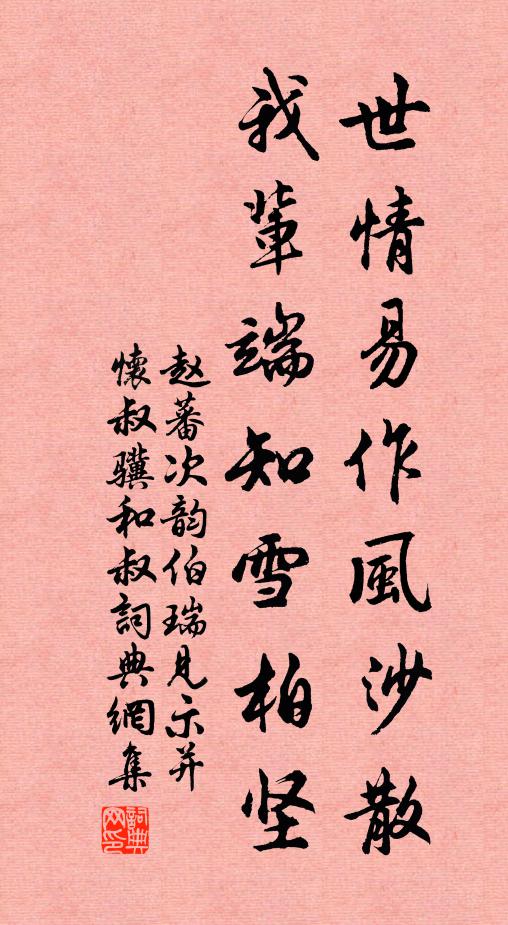 世情易作風沙散
我輩端知雪柏坚
赵蕃次韵伯瑞見示并
懷叔骥和叔詞典網集
詞典网印